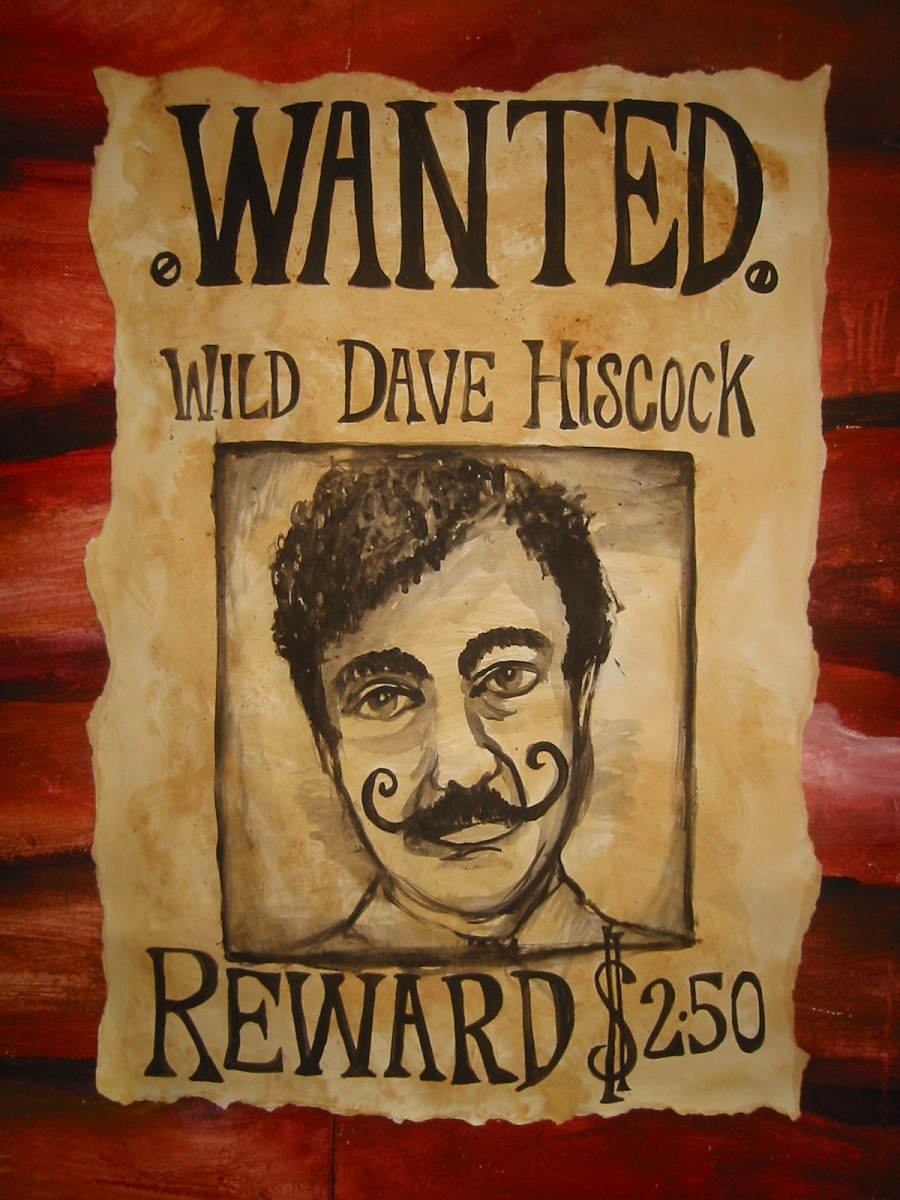 WANTED
WILD DAVE HISCOCK
REWARD $2.50